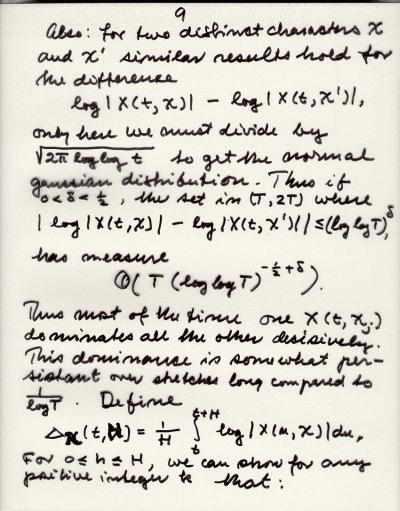 9
Also: for two distinct characters χ
and χ' similar results hold for
the difference
log |X(t, χ)| − log |X(t, χ')|,
only here we must divide by
√(2π log log t) to get the normal
gaussian distribution. Thus if
0 < δ < 1/2, the set in (T, 2T) where
| log |X(t, χ)| − log |X(t, χ')|| ≤ (log log T)^δ,
has measure
O( T (log log T)^(−1/2+δ) ).
Thus most of the time one X(t, χ.)
dominates all the other desisively.
This dominanse is somewhat per-
sistant over stretches long compared to
1/log T. Define
Δ_χ(t, H) = 1/H ∫_t^(t+H) log |X(u, χ)| du,
For 0 ≤ h ≤ H, we can show for any
positive integer k that: